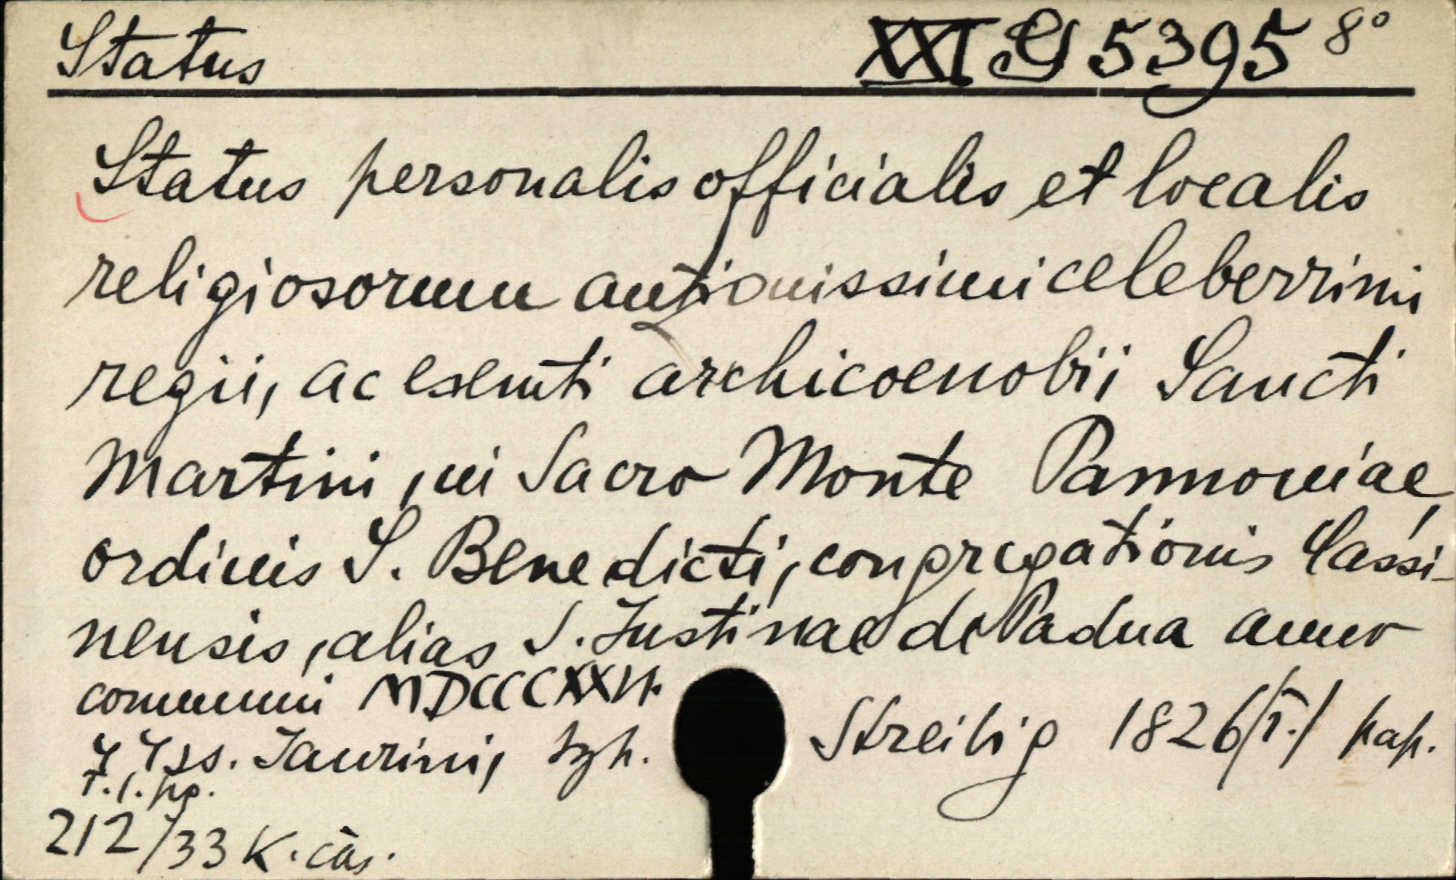 Status XXI G 5395 8°
Status personalis officialis et localis
religiosorum antiquissimi celeberrimi
regii, ac esemti archicoenobii Sancti
Martini, in Sacro Monte Pannoniae,
ordinis S. Benedicti, congregationis Cassi-
nensis, alias S. Justinae de Padua anno
communi MDCCCXXVI.
Jaurini, typ. Streibig 1826 /I./ pap.
212/33 K. cás.